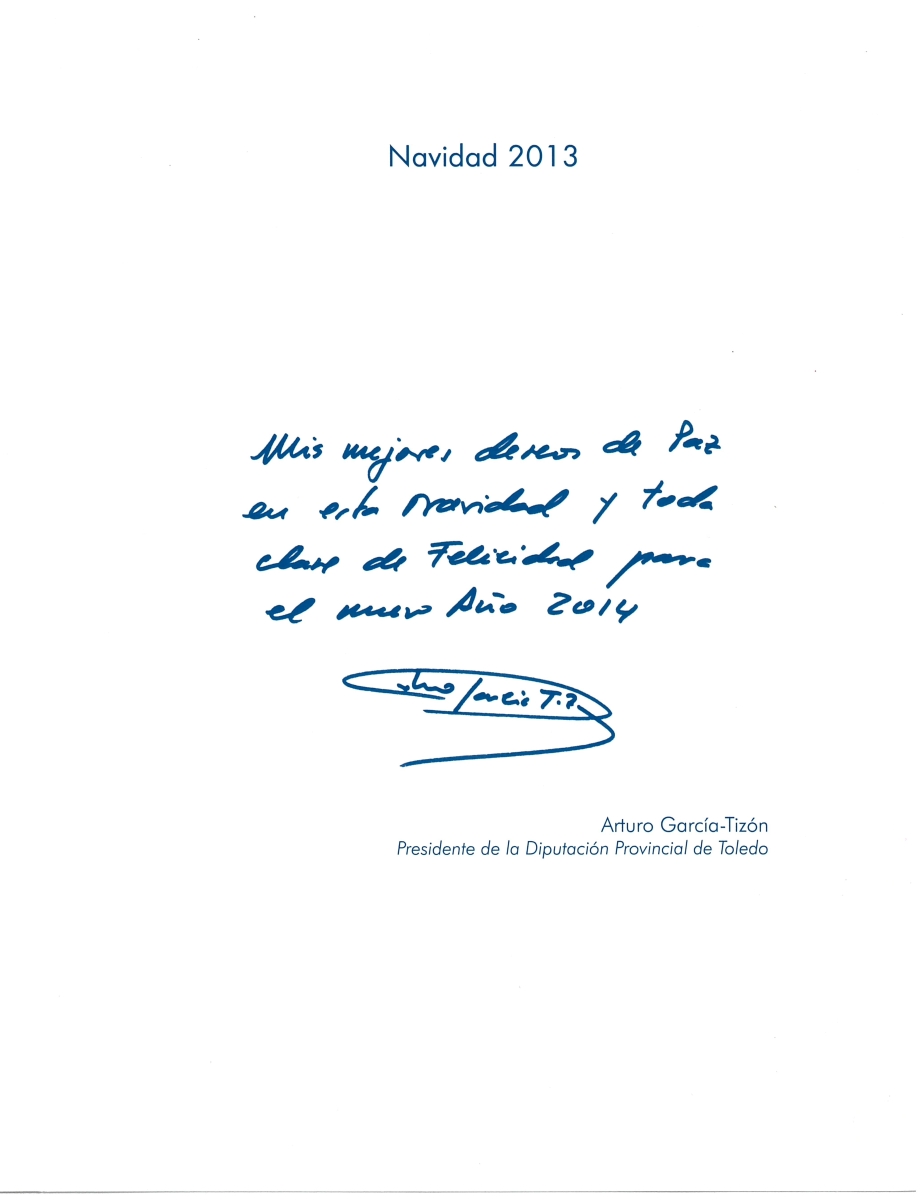 Navidad 2013
Mis mejores deseos de Paz
en esta Navidad y toda
clase de Felicidad para
el nuevo Año 2014
Arturo García T.
Arturo García-Tizón
Presidente de la Diputación Provincial de Toledo